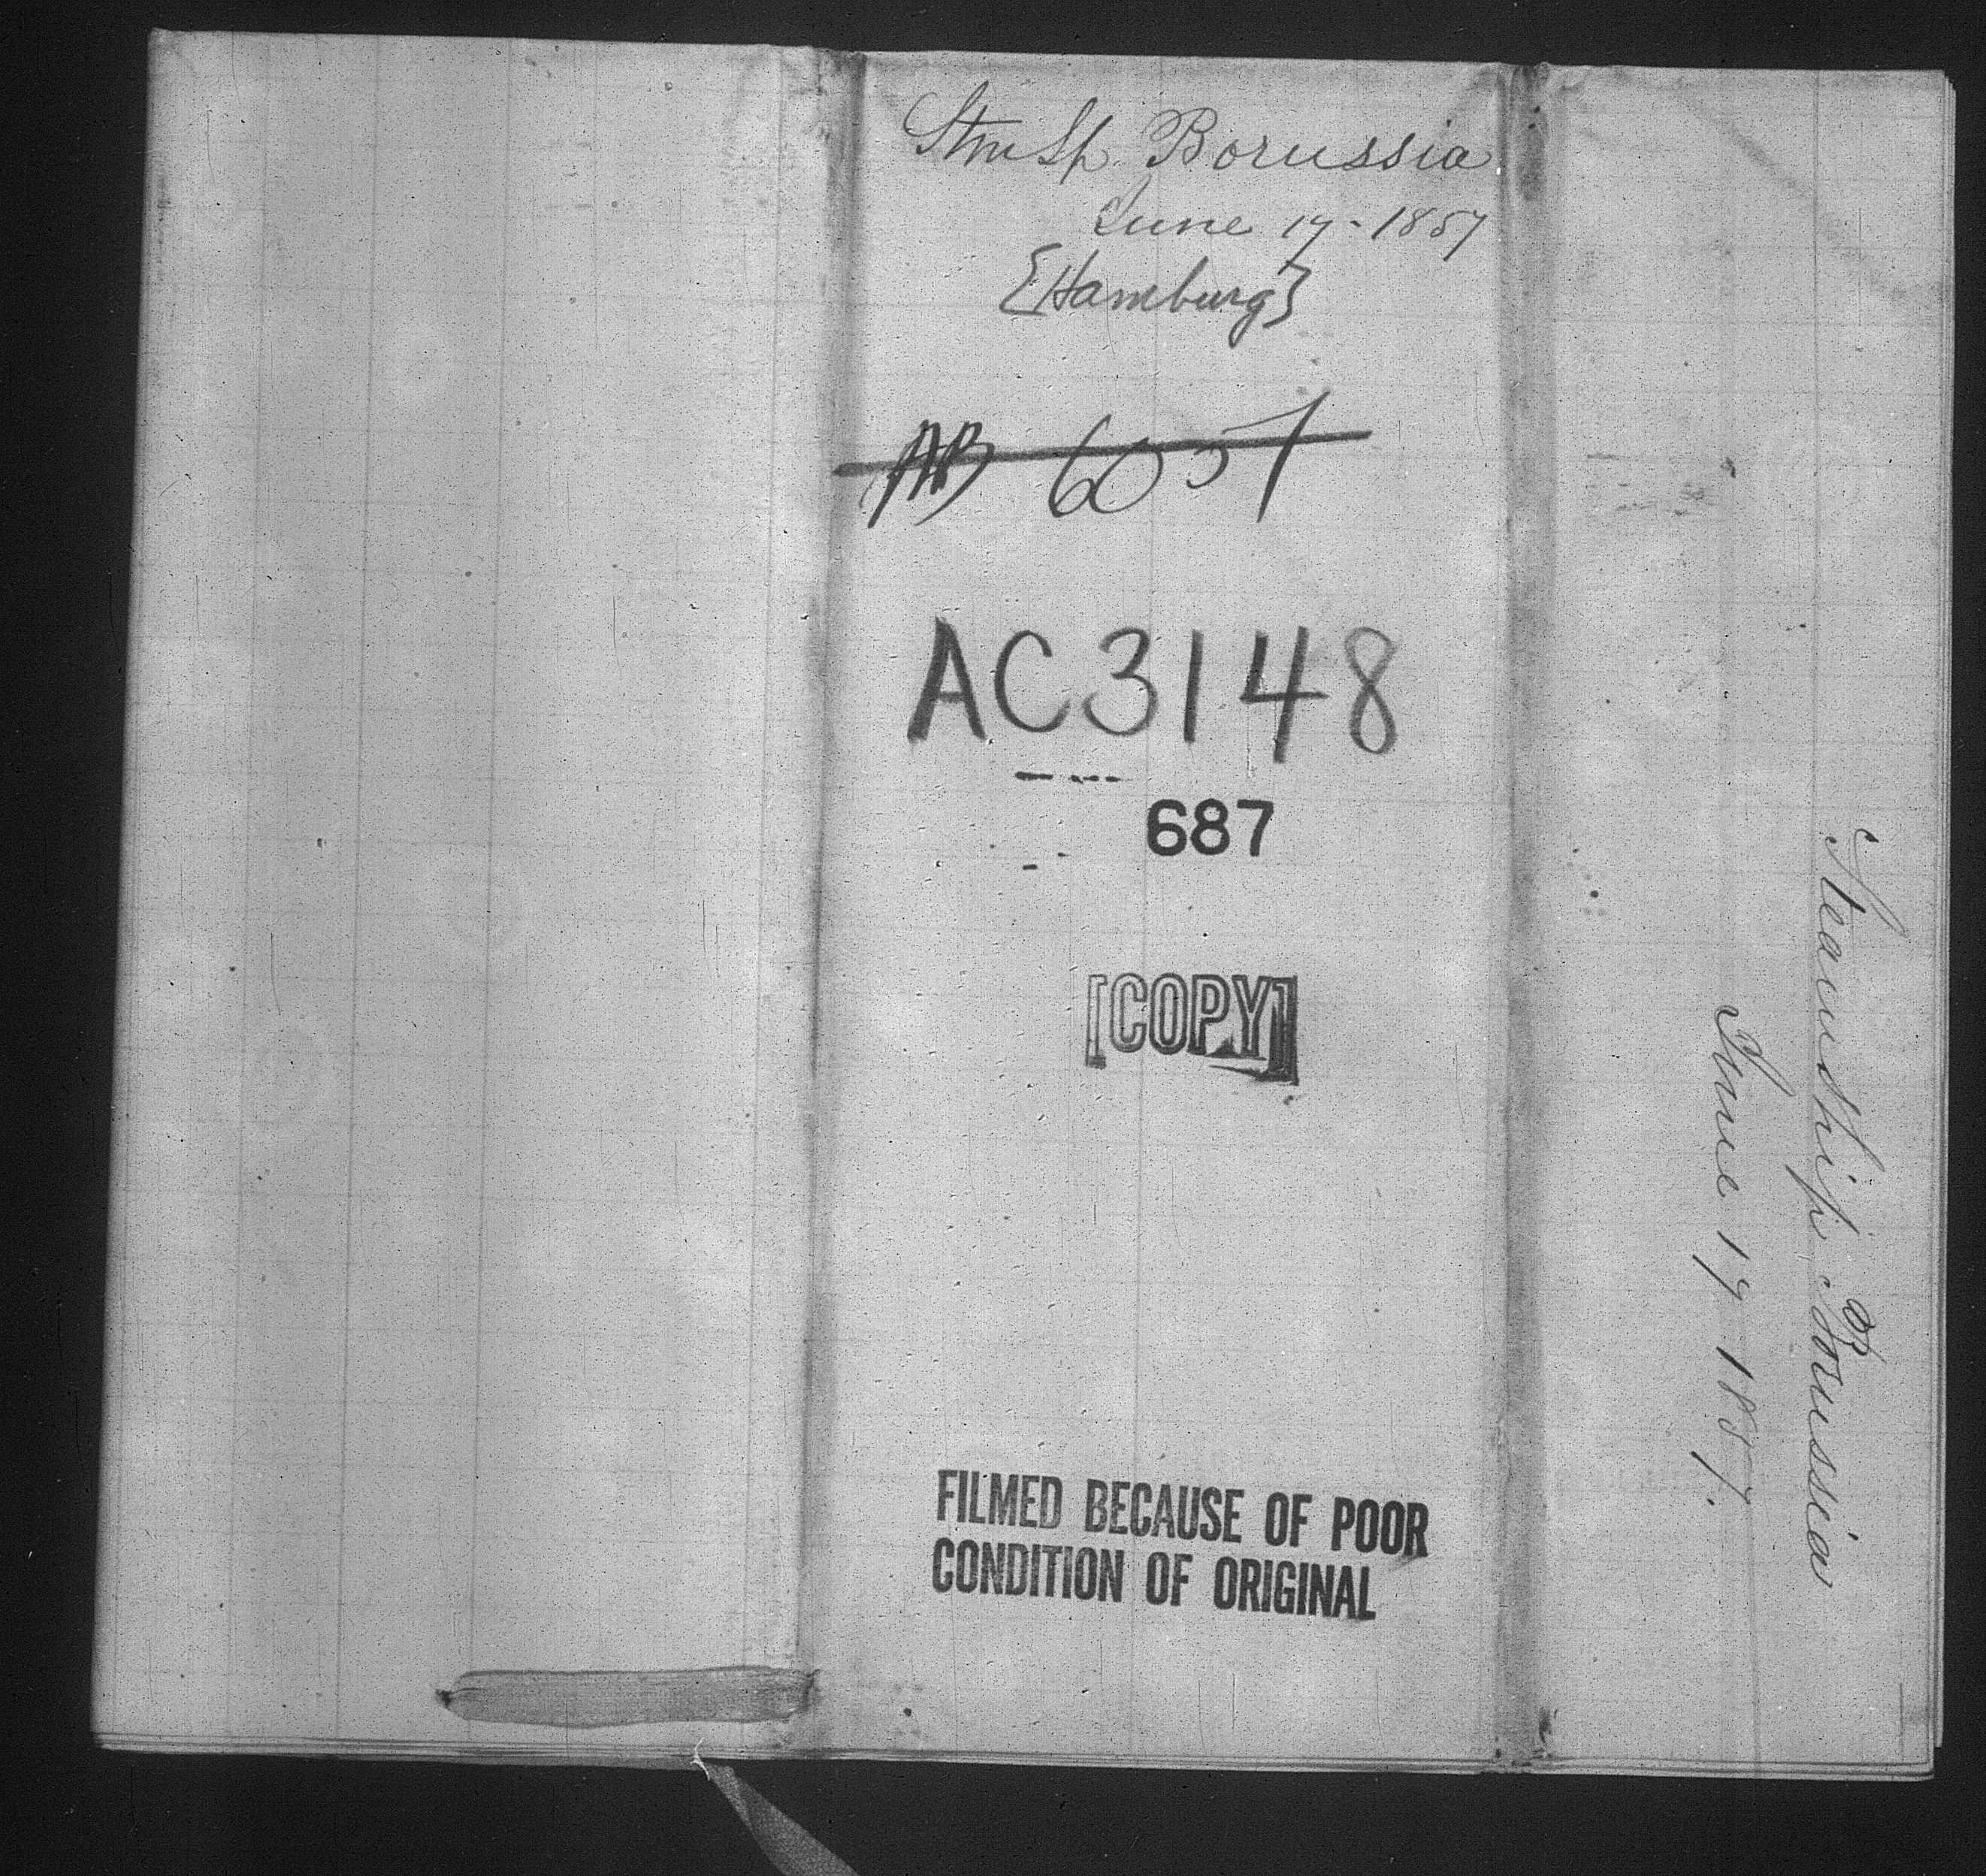 StmSh. Borussia
June 17 - 1857
{Hamburg}
AB 6057
AC3148
687
[COPY]
FILMED BECAUSE OF POOR
CONDITION OF ORIGINAL
Steamship Borussia
June 17 1857.